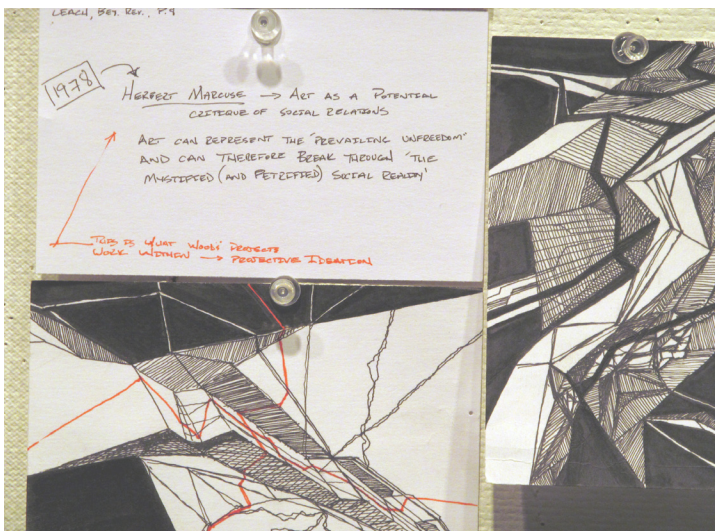 LEACH, BEY. REV., P.9
1978
HERBERT MARCUSE → ART AS A POTENTIAL
CRITIQUE OF SOCIAL RELATIONS
ART CAN REPRESENT THE 'PREVAILING UNFREEDOM'
AND CAN THEREFORE BREAK THROUGH 'THE
MYSTIFIED (AND PETRIFIED) SOCIAL REALITY'
THIS IS WHAT WOODS' PROJECTS
WORK WITHIN → PROJECTIVE IDEATION